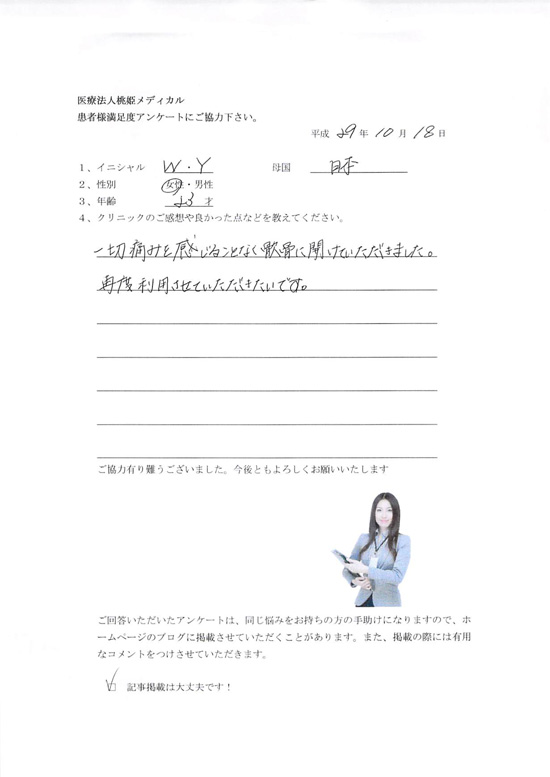 医療法人桃姫メディカル
患者様満足度アンケートにご協力下さい。
平成 29 年 10 月 18 日
1、イニシャル W・Y 母国 日本
2、性別 女性・男性
3、年齢 23 才
4、クリニックのご感想や良かった点などを教えてください。
一切痛みを感じることなく軟骨に開けていただきました。
再度利用させていただきたいです。
ご協力有り難うございました。今後ともよろしくお願いいたします
ご回答いただいたアンケートは、同じ悩みをお持ちの方の手助けになりますので、ホ
ームページのブログに掲載させていただくことがあります。また、掲載の際には有用
なコメントをつけさせていただきます。
記事掲載は大丈夫です！